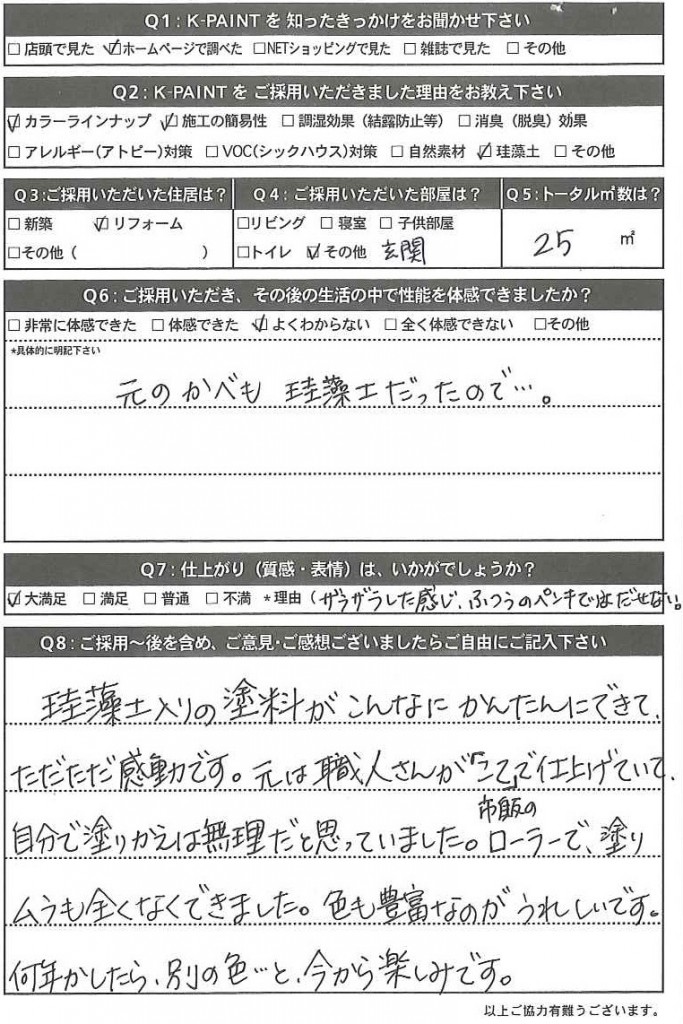 Q1：K-PAINTを 知ったきっかけをお聞かせ下さい
□店頭で見た ☑ホームページで調べた □NETショッピングで見た □雑誌で見た □その他
Q2：K-PAINTを ご採用いただきました理由をお教え下さい
☑カラーラインナップ ☑施工の簡易性 □調湿効果（結露防止等） □消臭（脱臭）効果
□アレルギー（アトピー）対策 □VOC（シックハウス）対策 □自然素材 ☑珪藻土 □その他
Q3：ご採用いただいた住居は？
□新築 ☑リフォーム
□その他（ ）
Q4：ご採用いただいた部屋は？
□リビング □寝室 □子供部屋
□トイレ ☑その他 玄関
Q5：トータル㎡数は？
25 ㎡
Q6：ご採用いただき、その後の生活の中で性能を体感できましたか？
□非常に体感できた □体感できた ☑よくわからない □全く体感できない □その他
*具体的に明記下さい
元のかべも 珪藻土だったので…。
Q7：仕上がり（質感・表情）は、いかがでしょうか？
☑大満足 □満足 □普通 □不満 *理由（ザラザラした感じ、ふつうのペンキではだせない。
Q8：ご採用～後を含め、ご意見・ご感想ございましたらご自由にご記入下さい
珪藻土入りの塗料がこんなにかんたんにできて、
ただただ感動です。元は職人さんが「こて」で仕上げていて、
自分で塗りかえは無理だと思っていました。市販のローラーで、塗り
ムラも全くなくできました。色も豊富なのがうれしいです。
何年かしたら、別の色…と、今から楽しみです。
以上ご協力有難うございます。